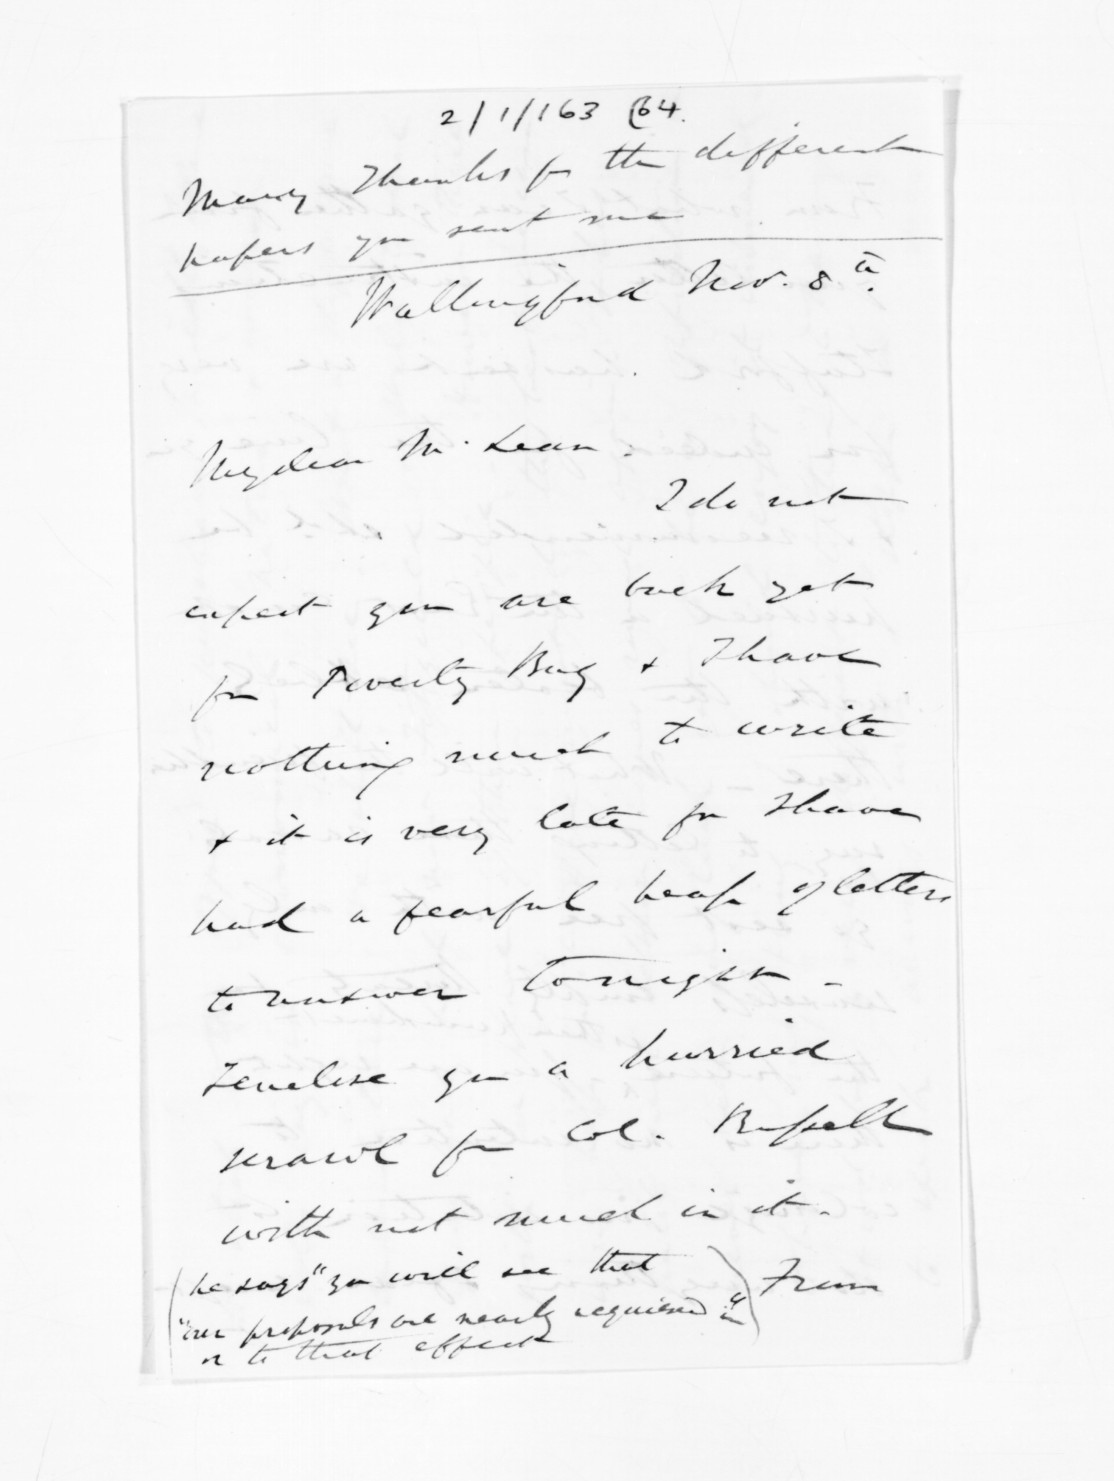 2/1/163 (64.
Many Thanks for the different
papers you sent me
Wallingford Nov. 8th.
My dear McLean.
I do not
expect you are back yet
from Poverty Bay & I have
nothing much to write
& it is very late for I have
had a fearful heap of letters
to answer tonight -
I enclose you a hurried
scrawl from Col. Russell
with not much in it.
(he says "you will see that
"our proposals are nearly acquiesced in"
or to that effect)
From